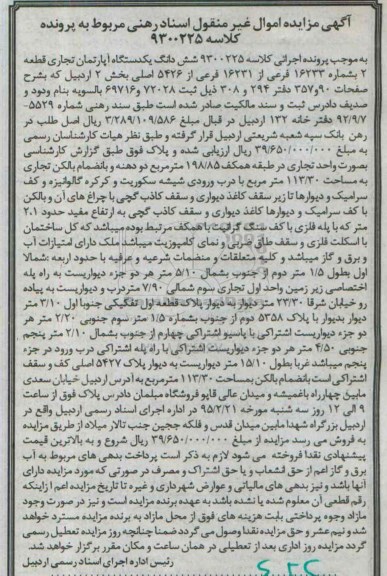 آگهی مزایده اموال غیر منقول اسناد رهنی مربوط به پرونده
کلاسه ۹۳۰۰۲۲۵
به موجب پرونده اجرائی کلاسه ۹۳۰۰۲۲۵ شش دانگ یکدستگاه آپارتمان تجاری قطعه
۲ بشماره ۱۶۲۳۳ فرعی از ۱۶۲۳۱ فرعی از ۵۴۲۶ اصلی بخش ۲ اردبیل که بشرح
صفحات ۹۰و۳۵۷ دفتر ۲۹۴ و ۳۰۸ ذیل ثبت ۷۲۰۲۸ و ۶۹۷۱۶ بالسویه بنام ودود و
صدیف دادرس ثبت و سند مالکیت صادر شده است طبق سند رهنی شماره ۵۵۲۹-
۹۲/۹/۷ دفتر خانه ۱۳۲ اردبیل در قبال مبلغ ۳/۲۸۹/۱۰۹/۵۸۶ ریال اصل طلب در
رهن بانک سپه شعبه شریعتی اردبیل قرار گرفته و طبق نظر هیات کارشناسان رسمی
به مبلغ ۳۹/۶۵۰/۰۰۰/۰۰۰ ریال ارزیابی شده و پلاک فوق طبق گزارش کارشناسی
بصورت واحد تجاری در طبقه همکف ۱۹۸/۸۵ مترمربع دو دهنه و بانضمام بالکن تجاری
به مساحت ۱۱۳/۳۰ متر مربع با درب ورودی شیشه سکوریت و کرکره گالوانیزه و کف
سرامیک و دیوارها تا زیر سقف کاغذ دیواری و سقف کاذب گچی با چراغ های آن و بالکن
با کف سرامیک و دیوارها کاغذ دیواری و سقف کاذب گچی به ارتفاع مفید حدود ۲.۱
متر که با پله فلزی با کف سنگ گرانیت با همکف مرتبط بوده میباشد که کل ساختمان
با اسکلت فلزی و سقف طاق ضربی و نمای کامپوزیت میباشد ملک دارای امتیازات آب
و برق و گاز میباشد و کلیه متعلقات و منضمات شرعیه و عرفیه با حدود اربعه :شمالا
اول بطول ۱/۵ متر دوم از جنوب بشمال ۵/۱۰ متر هر دو جزء دیواریست به راه پله
اختصاصی زیر زمین واحد اول تجاری سوم شمالی ۷/۹۰ متردرب و دیواریست به پیاده
رو خیابان شرقا ۲۳/۳۰ متر دیوار به دیوار پلاک قطعه اول تفکیکی جنوبا اول ۳/۱۰ متر
دیوار بدیوار با پلاک ۵۳۵۸ دوم از جنوب بشماره ۱/۵ متر سوم جنوبی ۲/۲۰ متر هر
دو جزء دیواریست اشتراکی با پاسیو اشتراکی چهارم از جنوب بشمال ۲/۱۰ متر پنجم
جنوبی ۴/۵۰ متر هر دو جزء دیواریست اشتراکی با راه پله اشتراکی درب ورود در جزء
پنجم میباشد غربا بطول ۱۵/۱۰ متر دیواریست به دیوار پلاک ۵۴۲۷ اصلی کف و سقف
اشتراکی است بانضمام بالکن بمساحت ۱۱۳/۳۰ مترمربع به آدرس اردبیل خیابان سعدی
مابین چهارراه باغمیشه و میدان عالی قاپو فروشگاه مبلمان دادرس پلاک فوق از ساعت
۹ الی ۱۲ روز سه شنبه مورخه ۹۵/۲/۲۱ در اداره اجرای اسناد رسمی اردبیل واقع در
اردبیل بزرگراه شهدا مابین میدان قدس و فلکه ججین جنب تالار میلاد از طریق مزایده
به فروش می رسد مزایده از مبلغ ۳۹/۶۵۰/۰۰۰/۰۰۰ ریال شروع و به بالاترین قیمت
پیشنهادی نقدا فروخته می شود لازم به ذکر است پرداخت بدهی های مربوط به آب
برق و گاز اعم از حق انشعاب و یا حق اشتراک و مصرف در صورتی که مورد مزایده دارای
آنها باشد و نیز بدهی های مالیاتی و عوارض شهرداری و غیره تا تاریخ مزایده اعم از اینکه
رقم قطعی آن معلوم شده یا نشده باشد به عهده برنده مزایده است و نیز در صورت وجود
مازاد وجوه پرداختی بابت هزینه های فوق از محل مازاد به برنده مزایده مسترد خواهد
شد و نیم عشر و حق مزایده نقدا وصول می گردد ضمنا چنانچه روز مزایده تعطیل رسمی
گردد مزایده روز اداری بعد از تعطیلی در همان ساعت و مکان مقرر برگزار خواهد شد.
رئیس اداره اجرای اسناد رسمی اردبیل